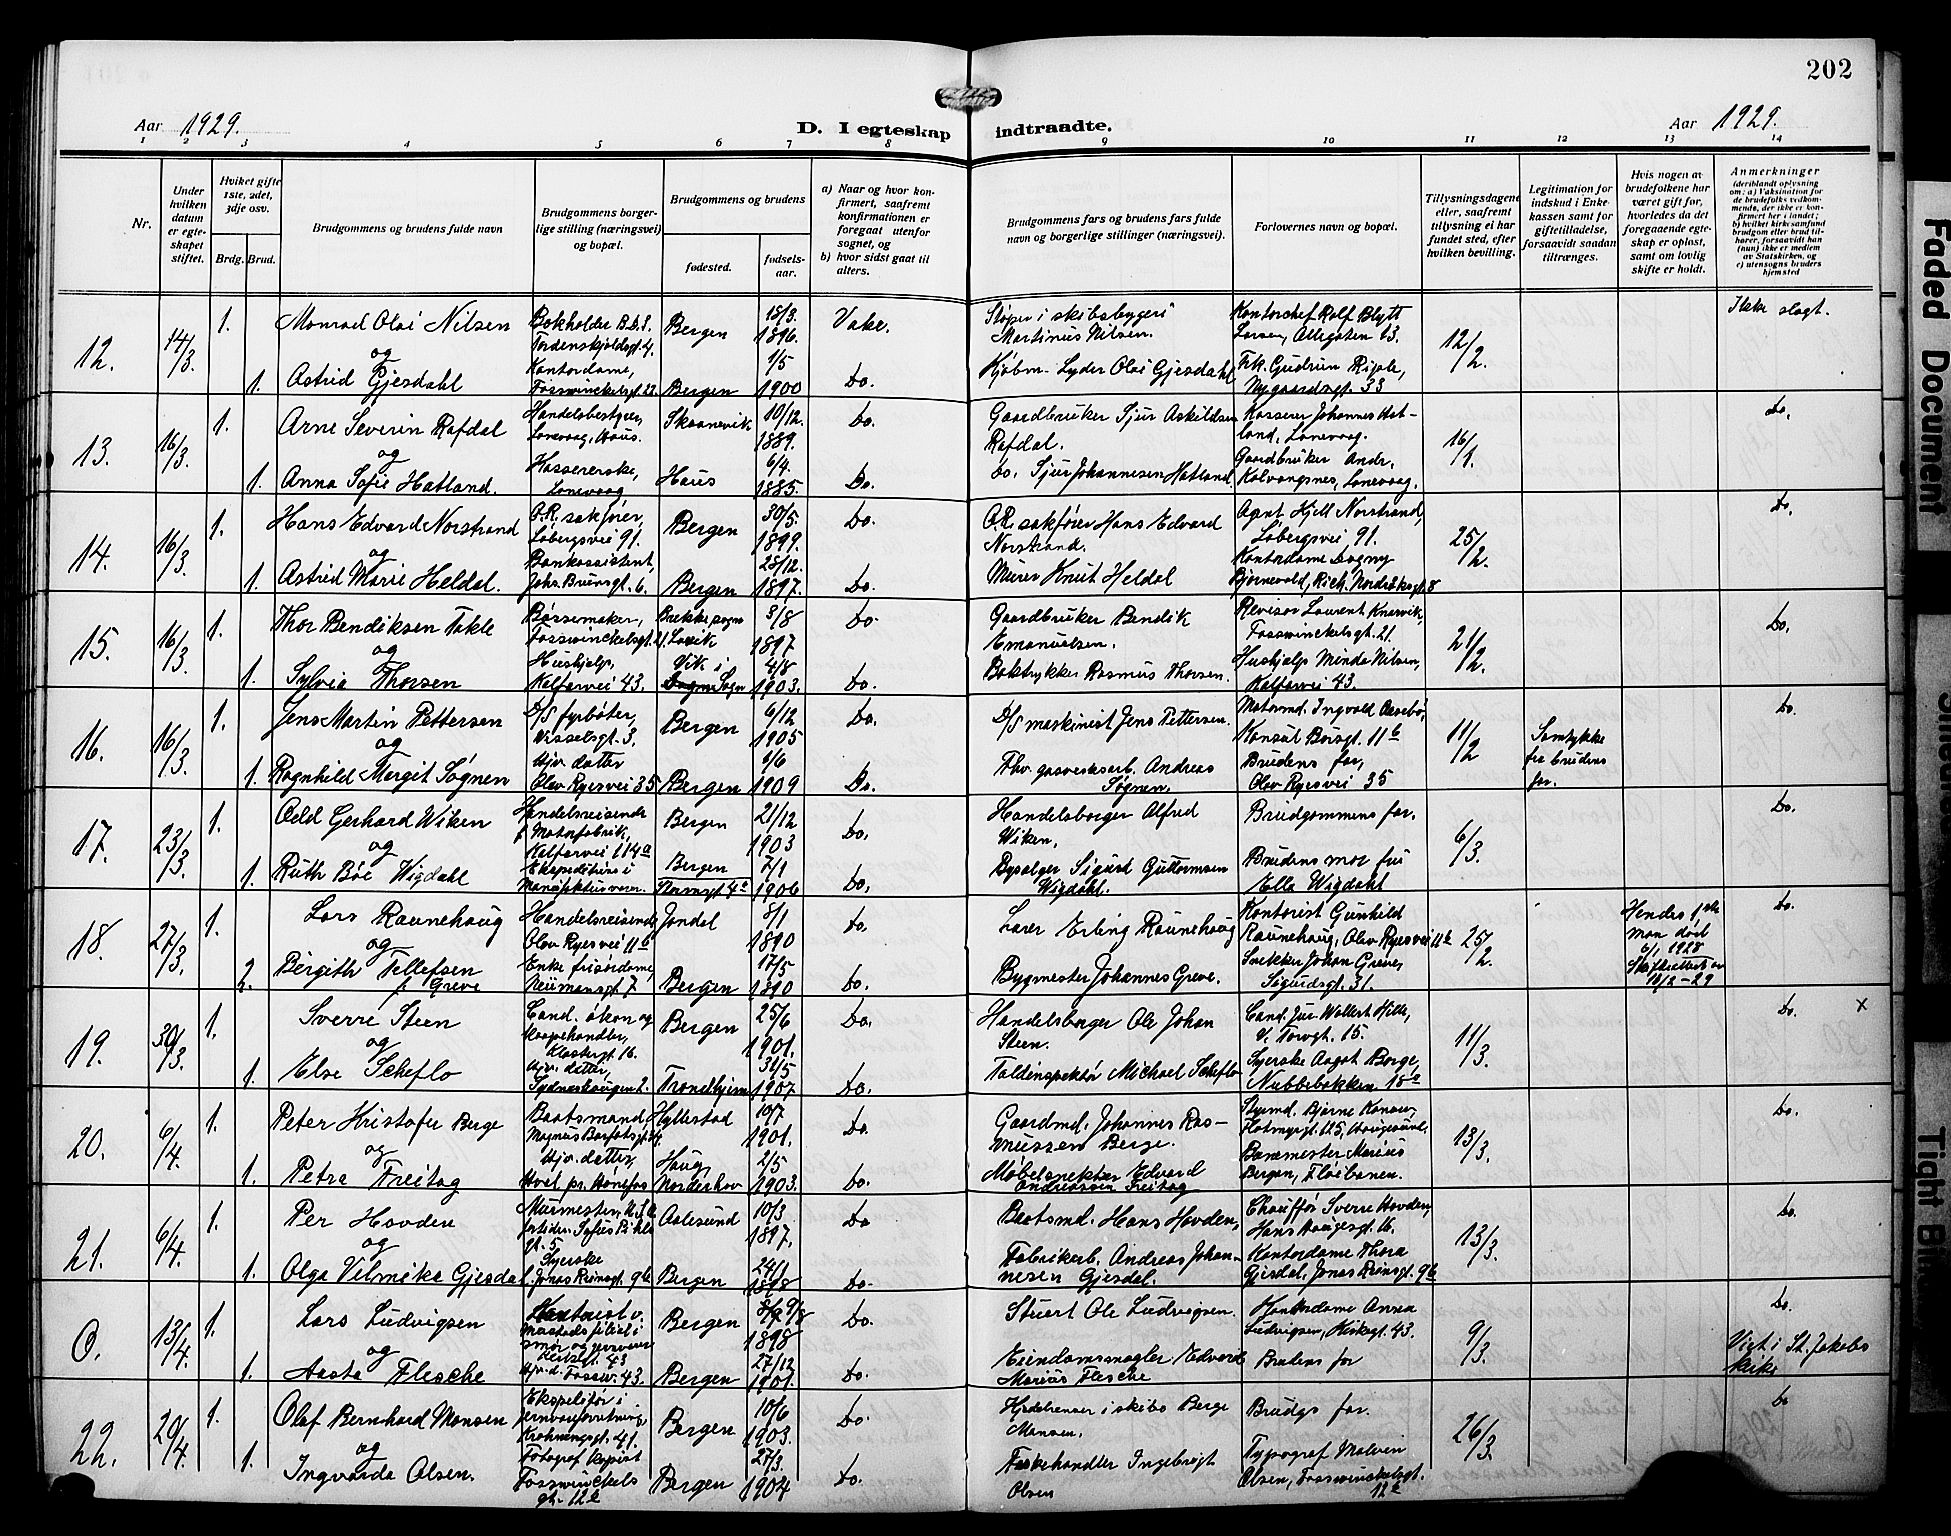 202
Aar 1929.
D. I egteskap indtraadte.
Aar 1929.
1 2 3 4 5 6 7 8 9 10 11 12 13 14
Nr.
Under hvilken datum er egte-skapet stiftet.
Hviket gifte 1ste, 2det, 3dje osv.
Brdg. Brud.
Brudgommens og brudens fulde navn
Brudgommens borger-lige stilling (næringsvei) og bopæl.
Brudgommens og brudens
fødested.
fødsels-aar.
a) Naar og hvor kon-firmert, saafremt konfirmationen er foregaat utenfor sognet, og
b) hvor sidst gaat til alters.
Brudgommens fars og brudens fars fulde navn og borgerlige stillinger (næringsvei).
Forlovernes navn og bopæl.
Tillysningsdagene eller, saafremt tillysning ei har fundet sted, efter hvilken bevilling.
Legitimation for indskud i Enke-kassen samt for giftetilladelse, forsaavidt saadan tiltrænges.
Hvis nogen av brudefolkene har været gift før, hvorledes da det foregaaende egte-skap er opløst, samt om lovlig skifte er holdt.
Anmerkninger
(deriblandt oplysning om: a) Vaksination for de brudefolks vedkom-mende, der ikke er kon-firmert her i landet; b) hvilket kirkesamfund brudgom eller brud til-hører, forsaavidt han (hun) ikke er medlem av Statskirken, og c) utensogns bruders hjemsted
12. 14/3 1. Monrad Olai Nilsen Bokholder B.b.S. Tordenskjoldsgt. 4. Bergen 18/3. 1896. Støper i skibsbyggeri Martinus Nilsen. Kontorchef Rolf Blytt Larsen, Allégaten 63. 12/2. Ikke slegt.
og
1. Astrid Gjesdahl Kontordame, Fosswinckelsgt. 22. Bergen 1/5 1900 Do. Kjøbm. Lyder Olai Gjesdahl Nygaardsgt. 33
13. 16/3. 1. Arne Severin Rafdal Handelsbestyrer, Lonevaag, Haus. Skaanevik 10/12. 1889. Do. Gaardbruker Sjur Askildsen Rafdal. Kasserer Johannes Hat-land, Lonevaag. 16/1. Do.
og
1. Anna Sofie Hatland. Lonevaag. Haus 6/4. 1885. Do. Do. Sjur Johannesen Hatland. Gaardbruker Andr. Kalvangsnes, Lonevaag.
14. 16/3. 1. Hans Edvard Norstrand O.R. sakfører, Løbergsvei 91. Bergen 30/5. 1899. Do. O.R. sakfører Hans Edvard Norstrand. Agnt Hjell Norstrand, Løbergsvei 91. 25/2. Do.
og
1. Astrid Marie Heldal. Bankassistent, Johs. Brunsgt. 6. Bergen 28/12. 1897. Do. Murer Knut Heldal Kontordame Dagny Bjørnevold, Rich. Nordraaksgt. 8
15. 16/3. 1. Thor Bendiksen Takle Børsemaker, Fosswinckelsgt. 21. Brekke sogn Lavik 3/8 1897 Do. Gaardbruker Bendik Emanuelsen. Revisor Laurent Knarvik, Fosswinckelsgt. 21. 21/2. Do.
og
1. Sylvia Thorsen Hushjelp, Kalfarvei 43. Vik i Sogn 4/8 1903. Do. Boktrykker Rasmus Thorsen. Hushjelp Minda Nilsen, Kalfarvei 43.
16. 16/3. 1. Jens Martin Pettersen D/S fyrbøter, Wesselsgt. 3. Bergen 6/12 1905 Do. D/S maskinist Jens Pettersen. Motormd. Ingvald Aasebø, Konsul Børsgt. 11b 11/2 Samtykke fra brudens far. Do.
og
1. Ragnhild Margit Søgnen Hjv. datter Olav Ryesvei 35 Bergen 1/6 1909 Do. Fhv. gasverksarb. Andreas Søgnen. Brudens far, Olav Ryesvei 35
17. 23/3. 1. Odd Gerhard Wiken Handelsreisende f. Motorfabrik, Kalfarvei 114a Bergen 21/12 1903 Do. Handelsborger Alfred Wiken. Brudgommens far. 6/3. Do.
og
1. Ruth Böe Wigdahl Ekspeditrise i Manufakturvarer. Bergen 7/1 1906 Do. Bysælger Sigurd Guttormsen Wigdahl. Brudens mor fru Ella Wigdahl
18. 27/3. 1. Lars Raunehaug Handelsreisende Olav Ryesvei 11b Jondal 8/1 1890 Do. Lærer Erling Raunehaug Kontorist Gunhild Raunehaug, Olav Ryesvei 11b 25/2. Hendes 1ste man død 6/1 1928 Skifteattest av 16/2 - 29 Do.
og
2. Bergith Tellefsen f. Greve Enke frisørdame, Neumansgt. 7 Bergen 17/5 1890 Do. Bygmester Johannes Greve. Snekker Johan Greve, Sigurdsgt. 31.
19. 30/3. 1. Sverre Steen Cand. økon og kaapehandler, Klostergt. 16. Bergen 25/6 1901. Do. Handelsborger Ole Johan Steen. Cand. jur Wollert Hille, V. Torvgt. 15. 11/3. Do. x
og
1. Else Scheflo Hjv. datter, Sydneshaugen 2. Trondhjem 31/5 1907 Do. Toldinspektør Michael Scheflo Syerske Aagot Borge, Nubbebakken 18a
20. 6/4. 1. Peter Kristofer Berge Baatsmand, Magnus Barfotsgt. Hyllestad 10/7 1901. Do. Gaardmd. Johannes Ras-mussen Berge. Styrmd. Bjarne Kanaus, 13/3. Do.
og
1. Petra Freitag Hjv. datter, Hval pr. Hønefos Haug, Norderhov 2/5 1903. Do. Møbelsnekker Edvard Andreassen Freitag Banemester Marius Bergen, Fløibanen.
21. 6/4. 1. Per Hovden Murmester, U.S.A. Aalesund 10/3. 1897. Do Baatsmd. Hans Hovden, Chauffør Sverre Hovden, Hans Haugesgt. 16. 13/3. Do.
og
1. Olga Vilmika Gjesdal Syerske Jonas Reinsgt. 9b Bergen 24/1 1898 Do. Fabrikarb. Andreas Johan-nesen Gjesdal. Kontordame Thora Gjesdal, Jonas Reinsgt. 9b
0. 13/4. 1. Lars Ludvigsen Bergen 9/8 1898 Do. Stuert Ole Ludvigsen. Kontordame Anna Ludvigsen, 43. 9/3. Do. Viet i St. Jakobs kirke
og
1. Aasta Flesche Hjv. d. Fossw. 43. Bergen 27/12 1901. Do. Eiendomsmægler Edvard Marius Flesche Brudens far
22. 20/4. 1. Olaf Bernhard Monsen Ekspeditør i jernvareforretning, Krohnengsgt. 41. Bergen 10/6 1903. Do. Kjedelrenser i skibs Berge Monsen. Brudgs far. 26/3. Do
og
1. Ingvarda Olsen. Fotograf kopist Fosswinckels gt. 12c Bergen 27/3. 1904 Do. Fiskehandler Ingebrigt Olsen Typograf Malvin Olsen, Fosswinckelsgt. 12c
Faded Document
Tight Bin